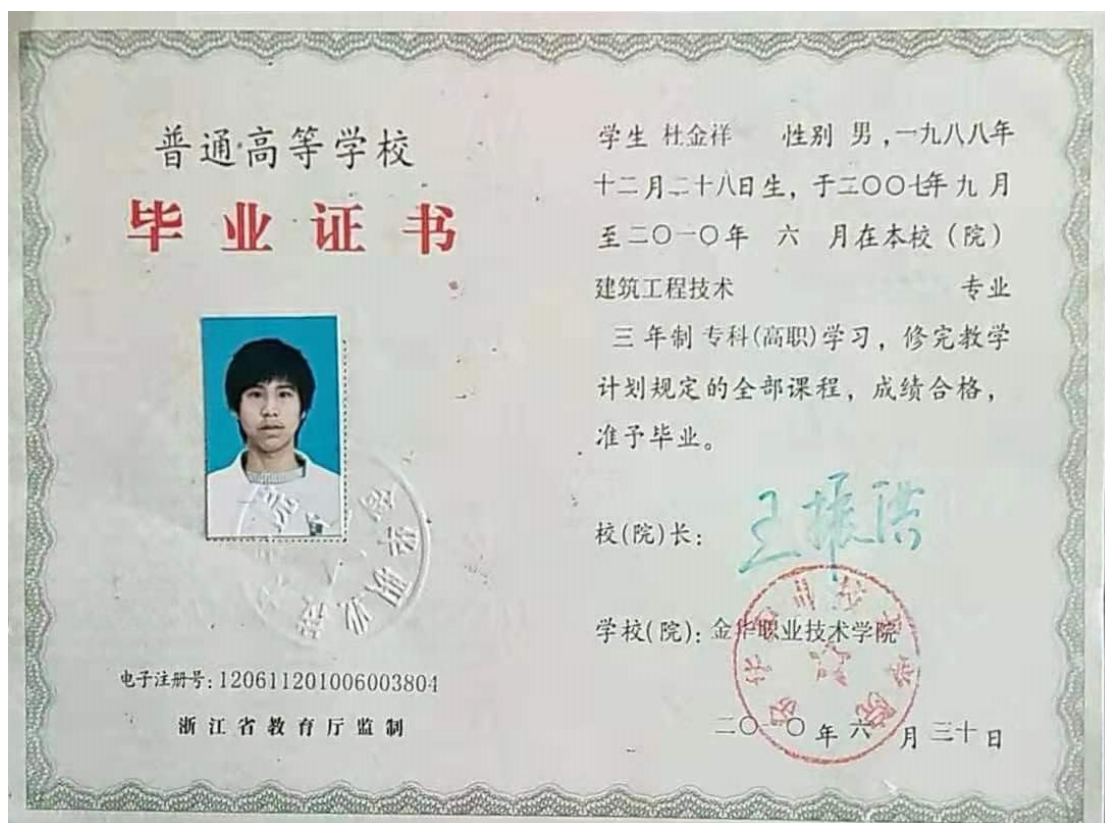 普通高等学校
毕业证书
电子注册号:120611201006003804
浙江省教育厅监制
学生 杜金祥 性别 男,一九八八年
十二月二十八日生,于二〇〇七年九月
至二〇一〇年 六 月在本校(院)
建筑工程技术 专业
三 年制 专科(高职)学习,修完教学
计划规定的全部课程,成绩合格,
准予毕业。
校(院)长: 王振洪
学校(院):金华职业技术学院
二〇一〇年六月三十日
金华职业技术学院